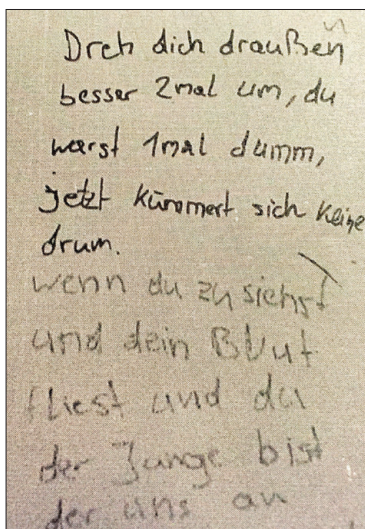 Dreh dich draußen
besser 2mal um, du
warst 1mal dumm,
jetzt kümmert sich keine
drum.
wenn du zu siehst
und dein Blut
fliest und du
der Junge bist
der uns an